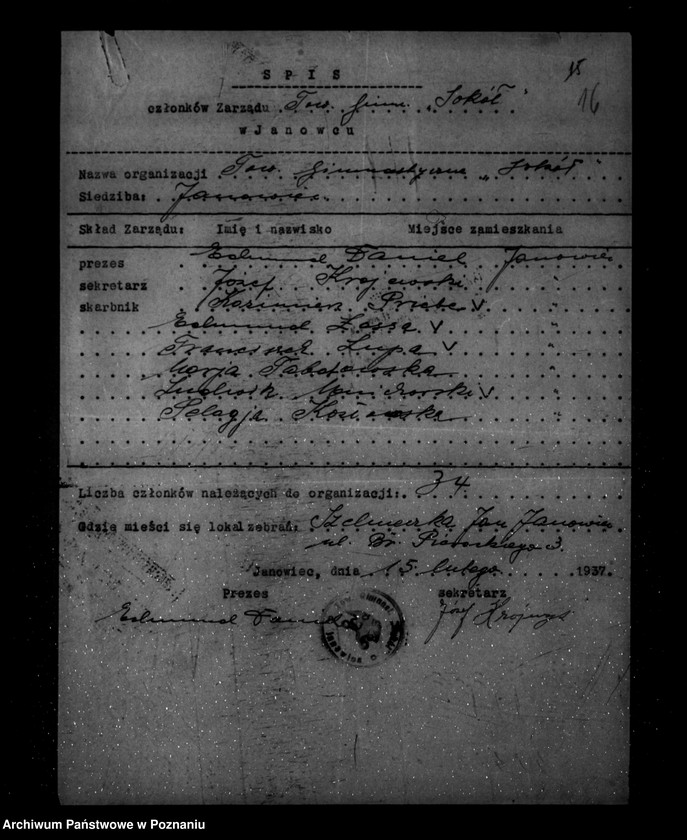 S P I S
15
16
członków Zarządu Tow. Gimn. „Sokół"
w Janowcu
Nazwa organizacji Tow. Gimnastyczne „Sokół"
Siedziba: Janowiec
Skład Zarządu: Imię i nazwisko Miejsce zamieszkania
prezes Edmund Daniel Janowiec
sekretarz Józef Krajewski "
skarbnik Kazimierz V "
Edmund V "
Franciszek Lupa V "
Marja "
Ludwik V "
Pelagja "
Liczba członków należących do organizacji: 34
Gdzie mieści się lokal zebrań: Jan Janowiec
ul. Br. Pierackiego 3.
Janowiec, dnia 15 lutego 1937.
Prezes sekretarz
Edmund Daniel Józef
Archiwum Państwowe w Poznaniu